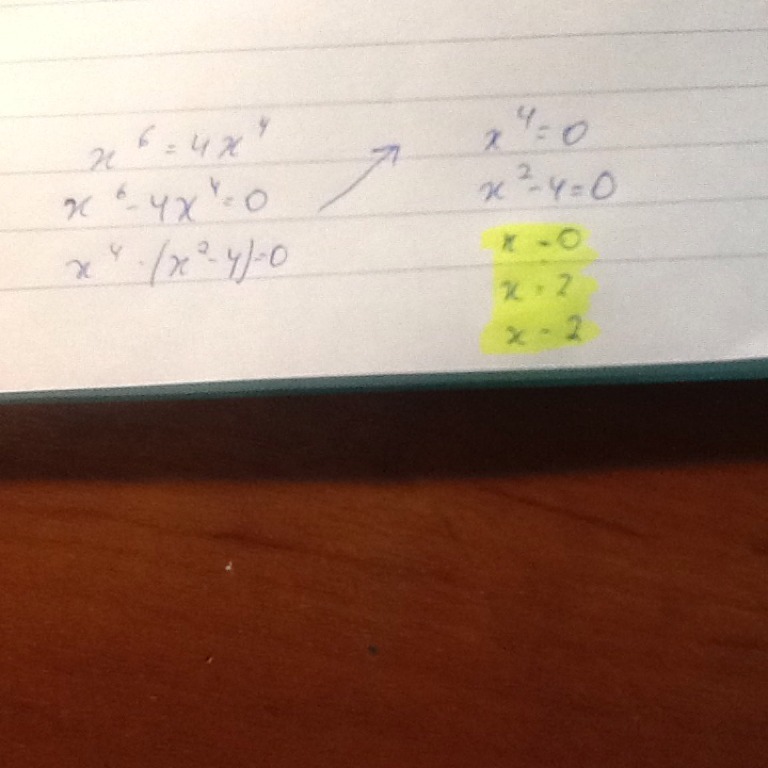 x⁶ = 4x⁴
x⁶ - 4x⁴ = 0
x⁴ · (x² - 4) = 0
x⁴ = 0
x² - 4 = 0
x = 0
x = 2
x - 2